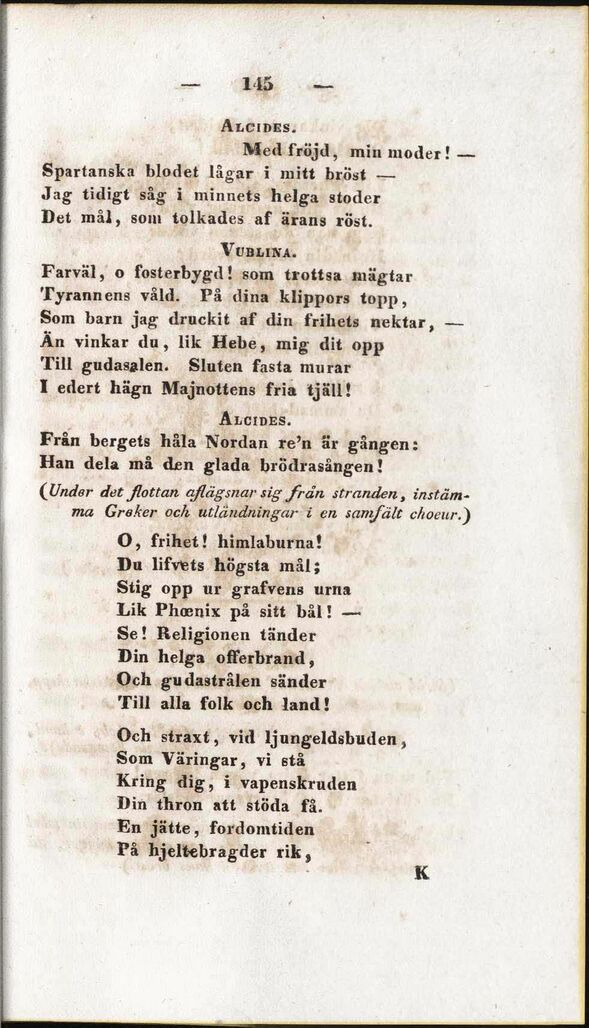 — 145 —
ALCIDES.
Med fröjd, min moder! —
Spartanska blodet lågar i mitt bröst —
Jag tidigt såg i minnets helga stoder
Det mål, som tolkades af ärans röst.
VUBLINA.
Farväl, o fosterbygd! som trottsa mägtar
Tyrannens våld. På dina klippors topp,
Som barn jag druckit af din frihets nektar, —
Än vinkar du, lik Hebe, mig dit opp
Till gudasalen. Sluten fasta murar
I edert hägn Majnottens fria tjäll!
ALCIDES.
Från bergets håla Nordan re'n är gången:
Han dela må den glada brödrasången!
(Under det flottan aflägsnar sig från stranden, instäm-
ma Greker och utländningar i en samfält choeur.)
O, frihet! himlaburna!
Du lifvets högsta mål;
Stig opp ur grafvens urna
Lik Phœnix på sitt bål! —
Se! Religionen tänder
Din helga offerbrand,
Och gudastrålen sänder
Till alla folk och land!
Och straxt, vid ljungeldsbuden,
Som Väringar, vi stå
Kring dig, i vapenskruden
Din thron att stöda få.
En jätte, fordomtiden
På hjeltebragder rik,
K